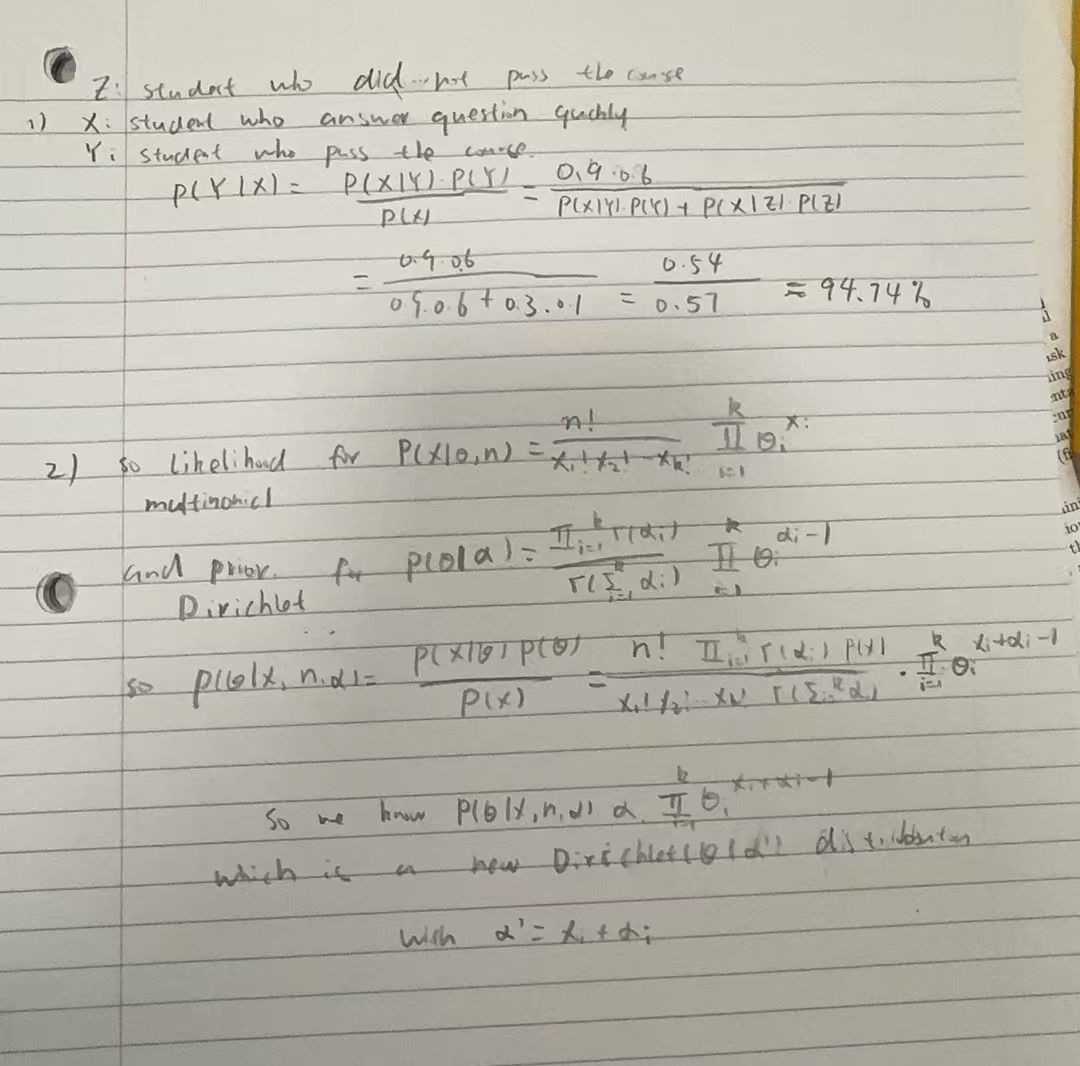 Z: student who did not pass the course
1) X: student who answer question quickly
Y: student who pass the course.
P(Y|X) = P(X|Y)·P(Y) / P(X) = 0.9·0.6 / P(X|Y)·P(Y) + P(X|Z)·P(Z)
= 0.9·0.6 / 0.9·0.6 + 0.3·0.1 = 0.54 / 0.57 ≈ 94.74%
2) so likelihood for P(X|θ,n) = n! / x₁!x₂!···xₖ! ∏ᵢ₌₁ᵏ θᵢ^xᵢ
multinomial
and prior for P(θ|α) = ∏ᵢ₌₁ᵏ Γ(αᵢ) / Γ(∑ᵢ₌₁ᵏ αᵢ) ∏ᵢ₌₁ᵏ θᵢ^αᵢ-1
Dirichlet
so P(θ|X,n,α) = P(X|θ)P(θ) / P(X) = n! ∏ᵢ₌₁ᵏ Γ(αᵢ) P(X) / x₁!x₂!···xₖ! Γ(∑ᵢᵏ αᵢ) · ∏ᵢ₌₁ᵏ θᵢ^xᵢ+αᵢ-1
So we know P(θ|X,n,α) α ∏ᵢ₌₁ᵏ θᵢ^xᵢ+αᵢ-1
which is a new Dirichlet(θ|α') distribution
with α' = xᵢ + αᵢ
a
ask
ing